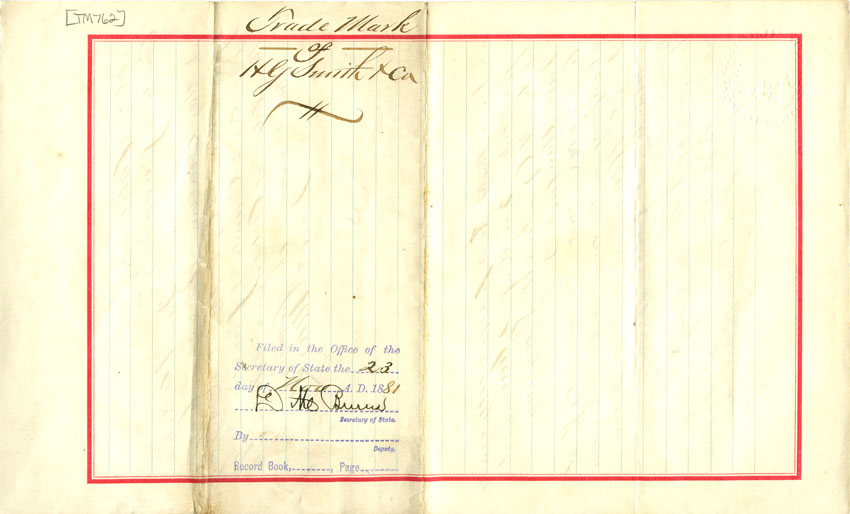 [TM-762]
Trade Mark
of
H G Smith & Co
Filed in the Office of the
Secretary of State the 23
day of A. D. 1881
Secretary of State.
By
Deputy.
Record Book, , Page